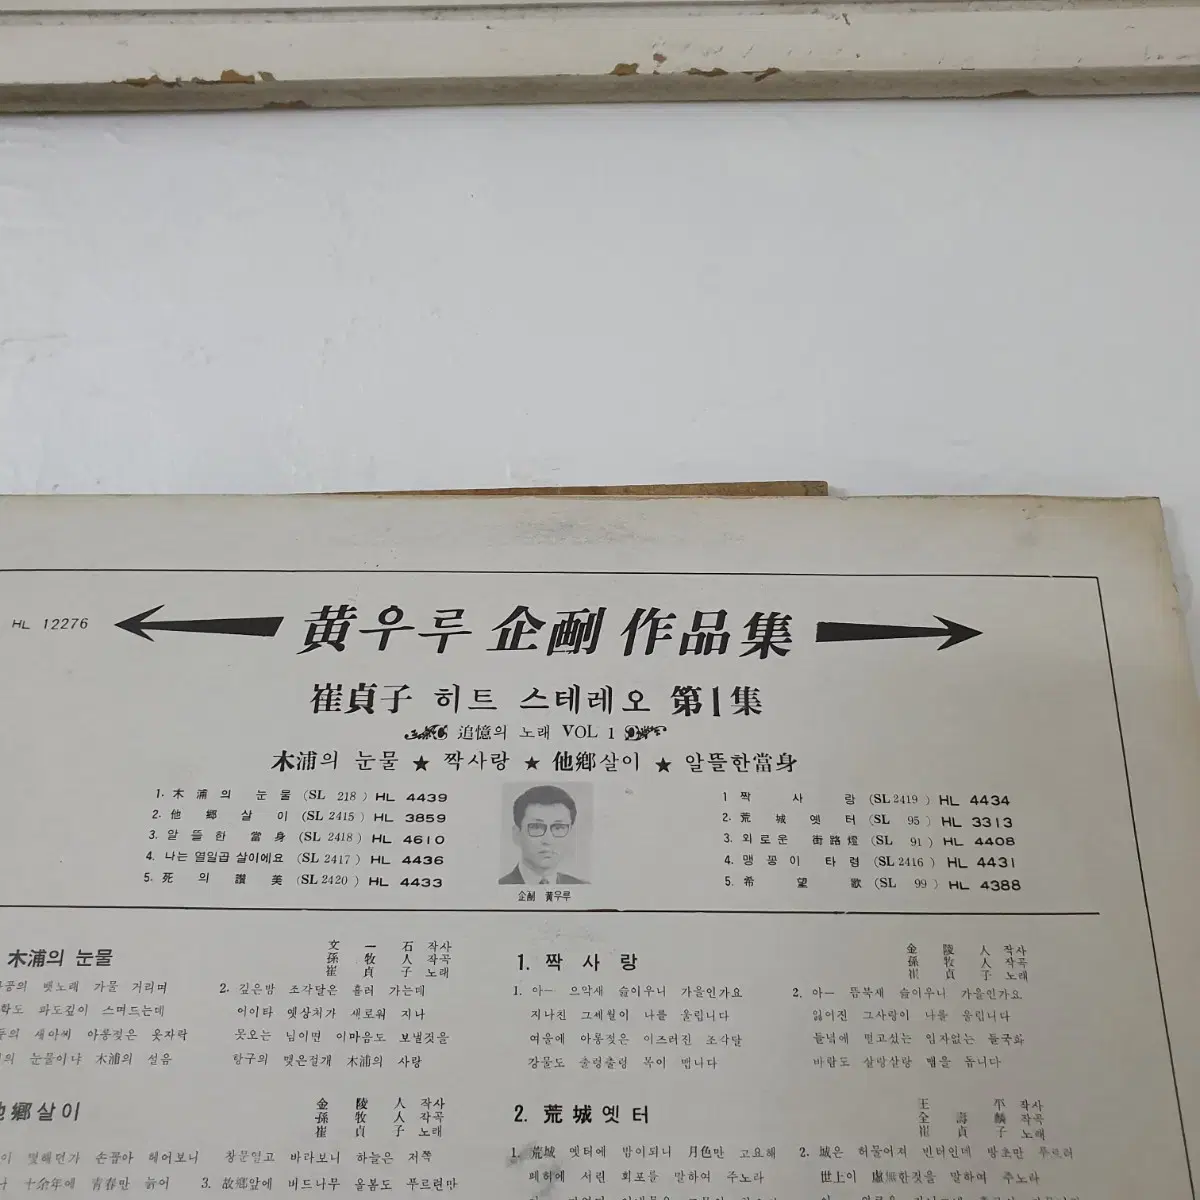 HL 12276
黄우루 企劃 作品集
崔貞子 히트 스테레오 第1集
追憶의 노래 VOL 1
木浦의 눈물 ★ 짝사랑 ★ 他鄕살이 ★ 알뜰한當身
1. 木浦의 눈물 (SL 218) HL 4439
2. 他鄕살이 (SL 2415) HL 3859
3. 알뜰한 當身 (SL 2418) HL 4610
4. 나는 열일곱 살이에요 (SL 2417) HL 4436
5. 死의 讃美 (SL 2420) HL 4433
企劃 黄우루
1 짝사랑 (SL 2419) HL 4434
2. 荒城옛터 (SL 95) HL 3313
3. 외로운 街路燈 (SL 91) HL 4408
4. 맹꽁이 타령 (SL 2416) HL 4431
5. 希望歌 (SL 99) HL 4388
木浦의 눈물
文一石 작사
孫牧人 작곡
崔貞子 노래
뱃노래 가물 거리며
파도깊이 스며드는데
새아씨 아롱젖은 옷자락
눈물이냐 木浦의 설음
2. 깊은밤 조각달은 흘러 가는데
어이타 옛상처가 새로워 지나
못오는 님이면 이마음도 보낼것을
항구의 맺은절개 木浦의 사랑
他鄕살이
金陵人 작사
孫牧人 작곡
崔貞子 노래
몇해던가 손꼽아 헤어보니
十余年에 青春만 늙어
창문열고 바라보니 하늘은 저쪽
3. 故鄕앞에 버드나무 올봄도 푸르련만
1. 짝사랑
金陵人 작사
孫牧人 작곡
崔貞子 노래
1. 아ー 으악새 슬이우니 가을인가요
지나친 그세월이 나를 울립니다
여울에 아롱젖은 이즈러진 조각달
강물도 출렁출렁 목이 멥니다
2. 아ー 뜸북새 슬이우니 가을인가요
잃어진 그사랑이 나를 울립니다
들녘에 떨고섰는 임자없는 들국화
바람도 살랑살랑 맴을 돕니다
2. 荒城옛터
王平 작사
全壽麟 작곡
崔貞子 노래
1. 荒城 옛터에 밤이되니 月色만 고요해
폐허에 서린 회포를 말하여 주노라
2. 城은 허물어져 빈터인데 방초만 푸르러
世上이 虛無한것을 말하여 주노라